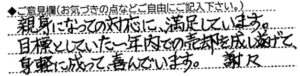 ◆ご意見欄(お気づきの点などご自由にご記入下さい。)
親身になっての対応に、満足しています。
目標としていた一年内での売却を成し遂げて、
身軽に成って、喜んでいます。 謝々